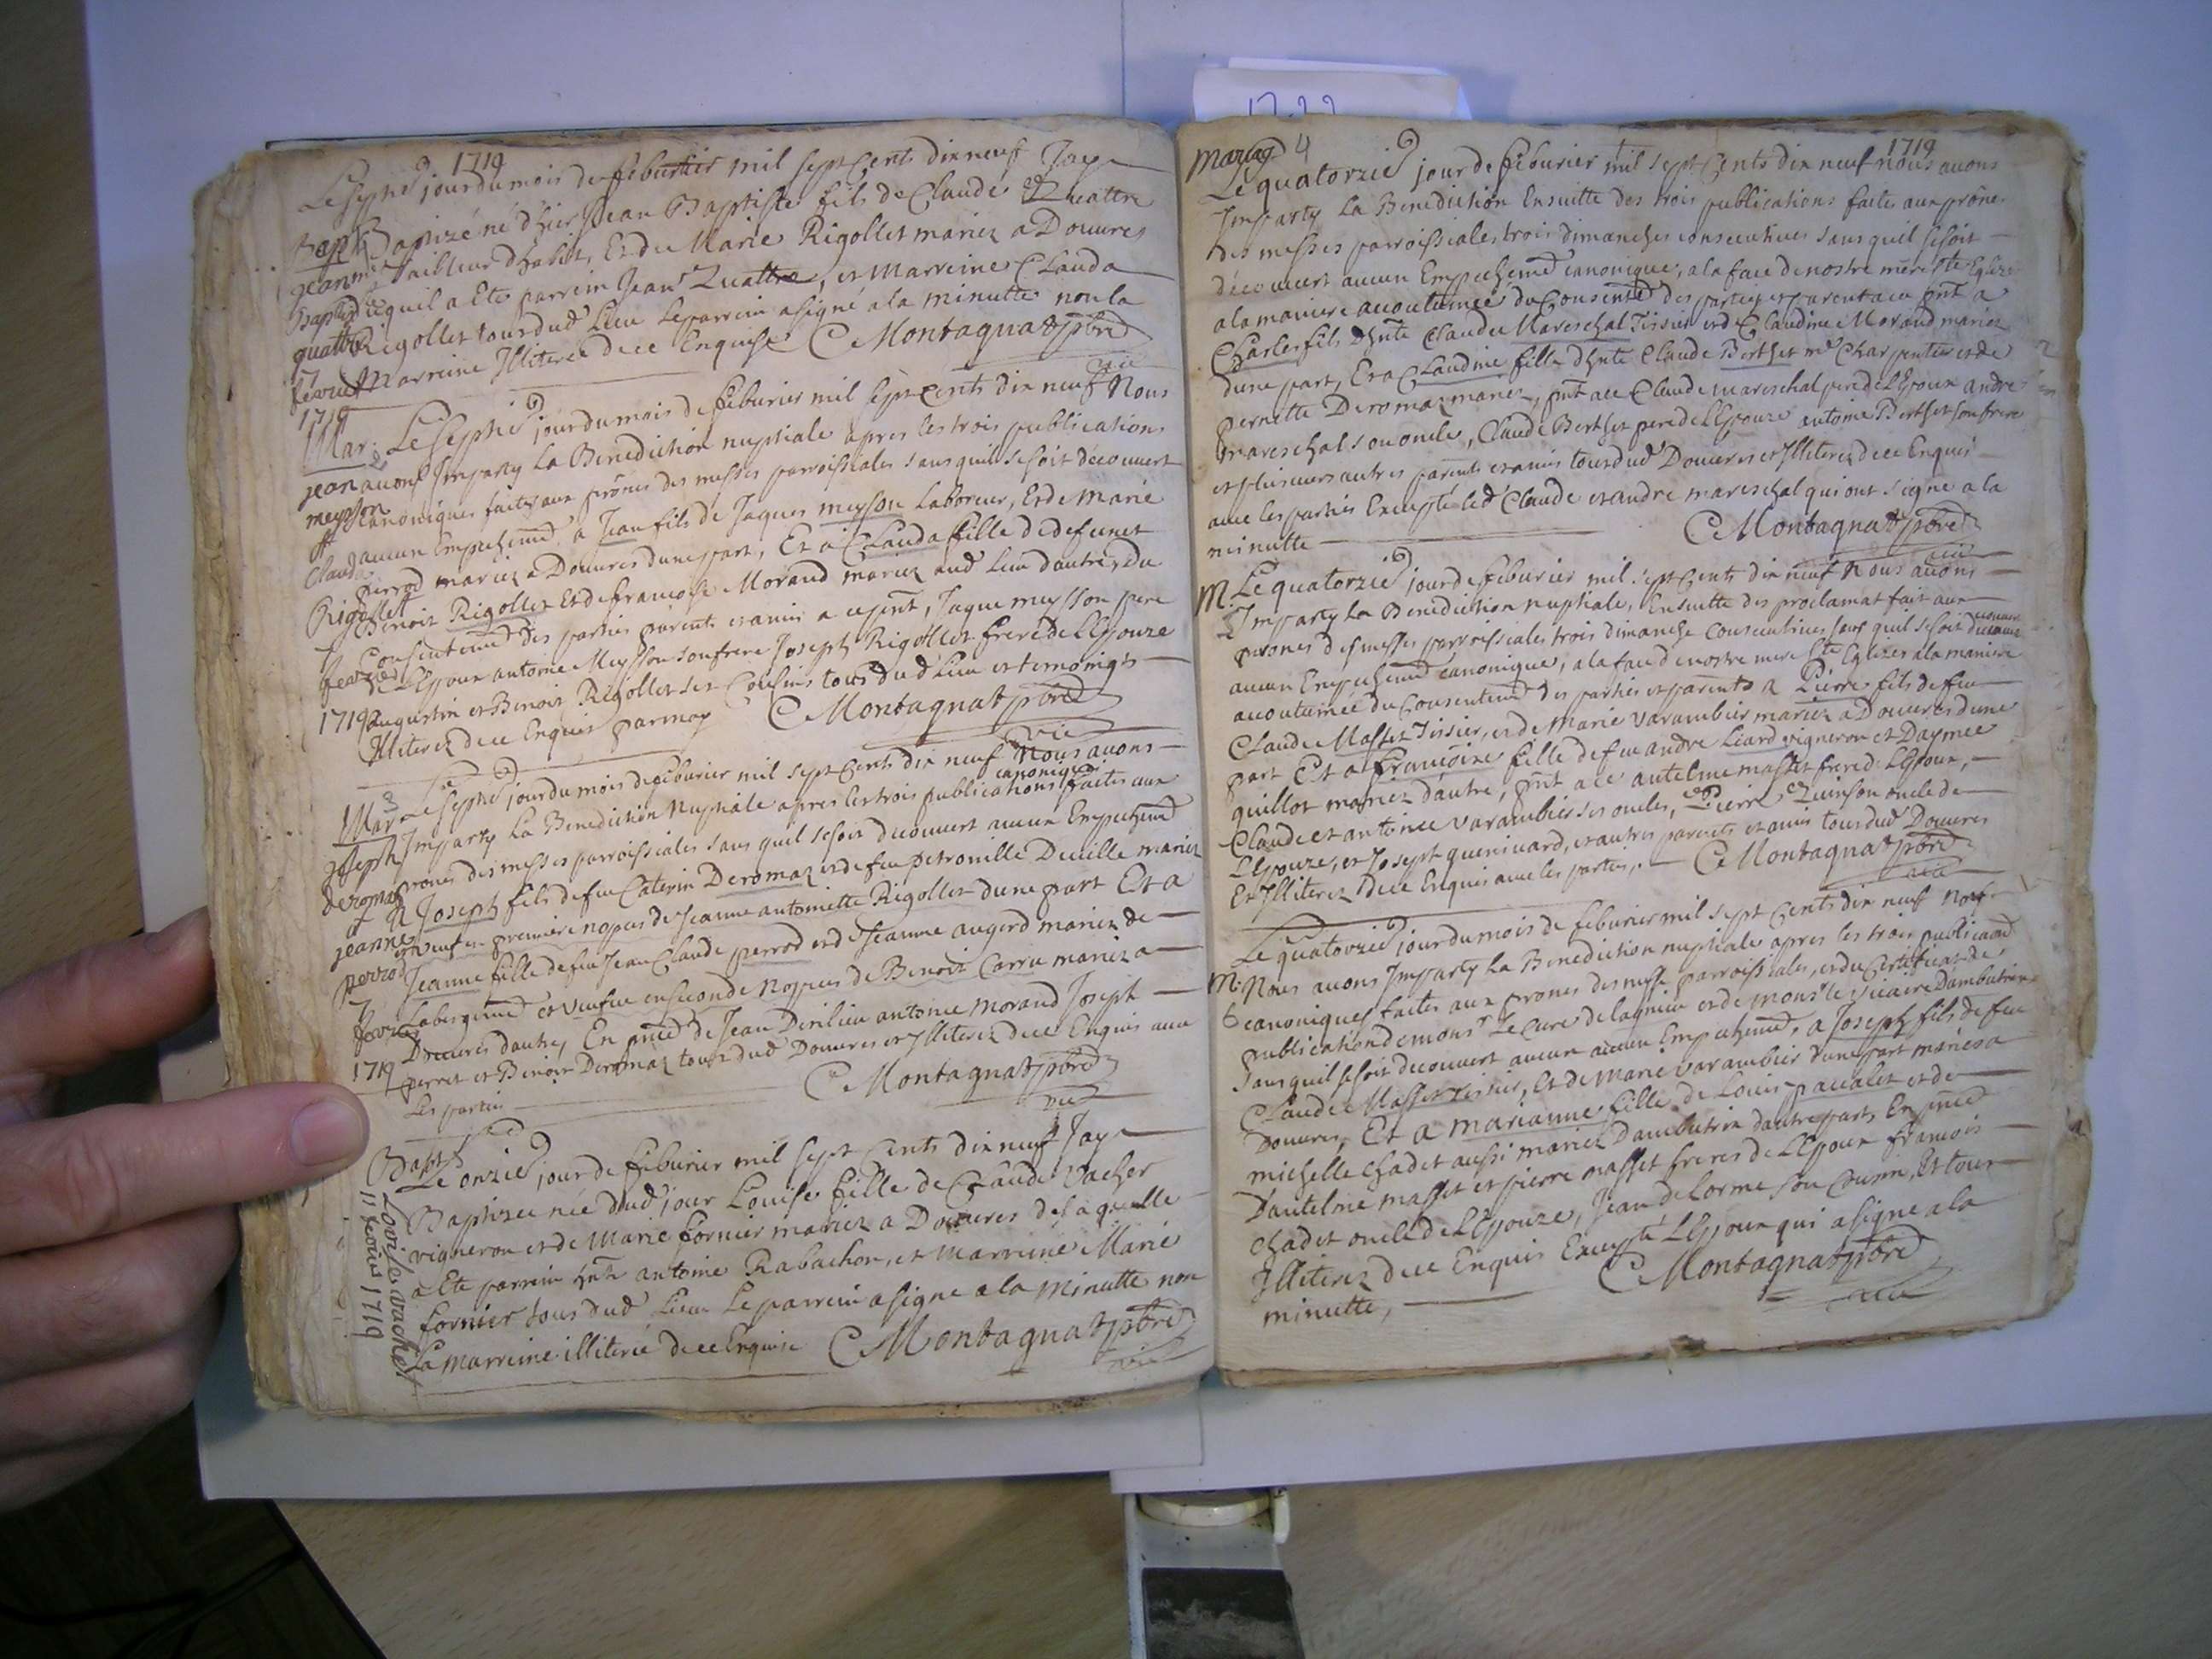 1719
Le septie jour du mois de feburier mil sept Cents dix neuf Jay
Bapt Baptizé né d'hier Jean Baptiste fils de Claude Quattre
jean mtre tailleur d'habits, Et de Marie Rigollet mariez a Douures
Baptiste duquil a Ete parrein Jean Quattre, et Marreine Clauda
quattre Rigollet tous dud Lieu Le parrein a signé a la minutte non la
7 feurier Marreine Illiterée de ce Enquise C Montagnat pbre
1719 vic
Mar: Le septie jour du mois de feburier mil sept cents dix neuf Nous
2
jean auons Imparty La Benediction nuptiale apres les trois publications
meysson canoniques faites aux prônes des messes parroissiales sans quil se soit découuert
et aucun Empechemt a Jean fils de Jaques meyson Laboreur, Et de Marie
Clauda perrod mariez a Douures dune part, Et a Clauda fille de defunct
Rigollet Benoit Rigollet Et de francoise Morand mariez aud Lieu dautre, Du
7 Consentemt des parties parents et amis a ce psent, Jaque meysson pere
feurier de L'Epoux antoine Meysson son frere Joseph Rigollet frere de L'Epouze
1719 augustin et Benoit Rigollet ses Cousins tous dud Lieu et temoings
Illiterez de ce Enquis par moy C Montagnat pbre
vic
Mar 3 Le septie jour du mois de feburier mil sept cents dix neuf Nous auons
canoniques
joseph Imparty La Benediction Nuptiale apres les trois publications faites aux
deromaz prones des messes parroissiales sans quil se soit decouuert aucun Empechemt
et A Joseph fils de feu Caterin Deromaz et de feu petronille Deuille mariez
jeanne et veuf en premiere nopces de Jeanne antoinette Rigollet dune part Et a
perrod Jeanne fille de feu Jean Claude perrod et de Jeanne augerd mariez de
7 feurier Labergemt et veufue en seconde Nopces de Benoit Carru mariez a
1719 Douures dautre, En pnce de Jean Derilieu antoine Morand Joseph
perret et Benoit Deromaz tous dud Douures et Illiterez de ce Enquis auec
Les parties C Montagnat pbre
vic
Bapt
Le onzie jour de feburier mil sept Cents dix neuf Jay
Baptizee née dud jour Louise fille de Claude Vacher
vigneron et de Marie fornier mariez a Douures de laquelle
a Ete parrein hnte antoine Rabachon, et marreine Marie
fornier tous dud Lieu Le parrein a signe a la minutte non
La marreine illiteree de ce Enquise C Montagnat pbre
vic
Louise vacher
11 feurier 1719
Mariage 4 1719
Le quatorzie jour de feburier mil sept Cents dix neuf nous auons
Imparty La Benediction Ensuitte des trois publications faites aux prônes
des messes parroissiales trois dimanches consecutiues sans quil se soit
découuert aucun Empechemt canonique, a la face de nostre mere ste Eglize
a la maniere accoutumée du Consentemt des parties et parents a ce psnt a
Charles fils dhnte Claude Mareschal Tissier et de Claudine Morand mariez
dune part, Et a Claudine fille dhnte Claude Berthet mtre Charpentier et de
pernette Deromaz mariez, psnt a ce Claude mareschal pere de L'Epoux andre
mareschal son oncle, Claude Berthet pere de L'Epouze antoine Berthet son frere
et plusieurs autres parents et amis tous dud Douures et Illiterez de ce Enquis
auec les parties Excepté led Claude et andre mareschal qui ont signe a la
minutte C Montagnat pbre
vic
M. Le quatorzie jour de feburier mil sept Cents dix neuf Nous auons
5 Imparty La Benediction nuptiale, Ensuitte des proclamat fait aux
prones des messes parroissiales trois dimanche Consecutiues sans quil se soit decouuert
aucun Empechemt canonique, a la face de nostre mere ste Eglize a la maniere
accoutumée du Consentemt des parties et parents a Pierre fils de feu
Claude Masset Tissier, et de Marie Varambier mariez a Douures dune
part Et a francoise fille de feu andre Liard vigneron et Daymee
quillot mariez dautre, psnt a ce antelme masset frere de L'Epoux,
Claude et antoine Varambier ses oncles, Pierre Quinson oncle de
L'Epouze, et Joseph queniuard, et autres parents et amis tous dud Douures
Et Illiterez de ce Enquis auec les parties. C Montagnat pbre
vic
Le quatorzie jour du mois de feburier mil sept Cents dix neuf
M. Nous auons Imparty La Benediction nuptiale apres les trois publications
6 canoniques faites aux prones des messe parroissiales, et du Certificat de
publication de monsr Le Cure de lagnieu et de monsr le vicaire Dambutrix
sans quil se soit decouuert aucun Empechemt, a Joseph fils de feu
Claude Masset Tissier, Et de Marie Varambier dune part mariés a
Douures, Et a Marianne fille de Louis paccalet et de
michelle chadet aussi mariez Dambutrix dautre part, En pnce
Dantelme masset et pierre masset freres de L'Epoux francois
chadet oncle de L'Epouze, Jean delorme son Cousin, Et tous
Illiterez de ce Enquis Excepté L'Epoux qui a signe a la
minutte, C Montagnat pbre
vic